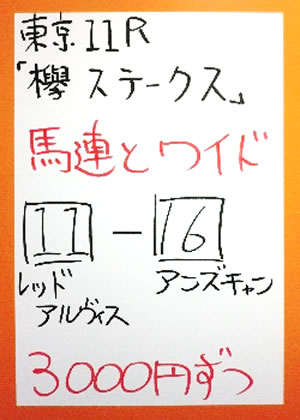 東京11R
「欅ステークス」
馬連とワイド
11－16
レッド アンズチャン
アルヴィス
3000円ずつ